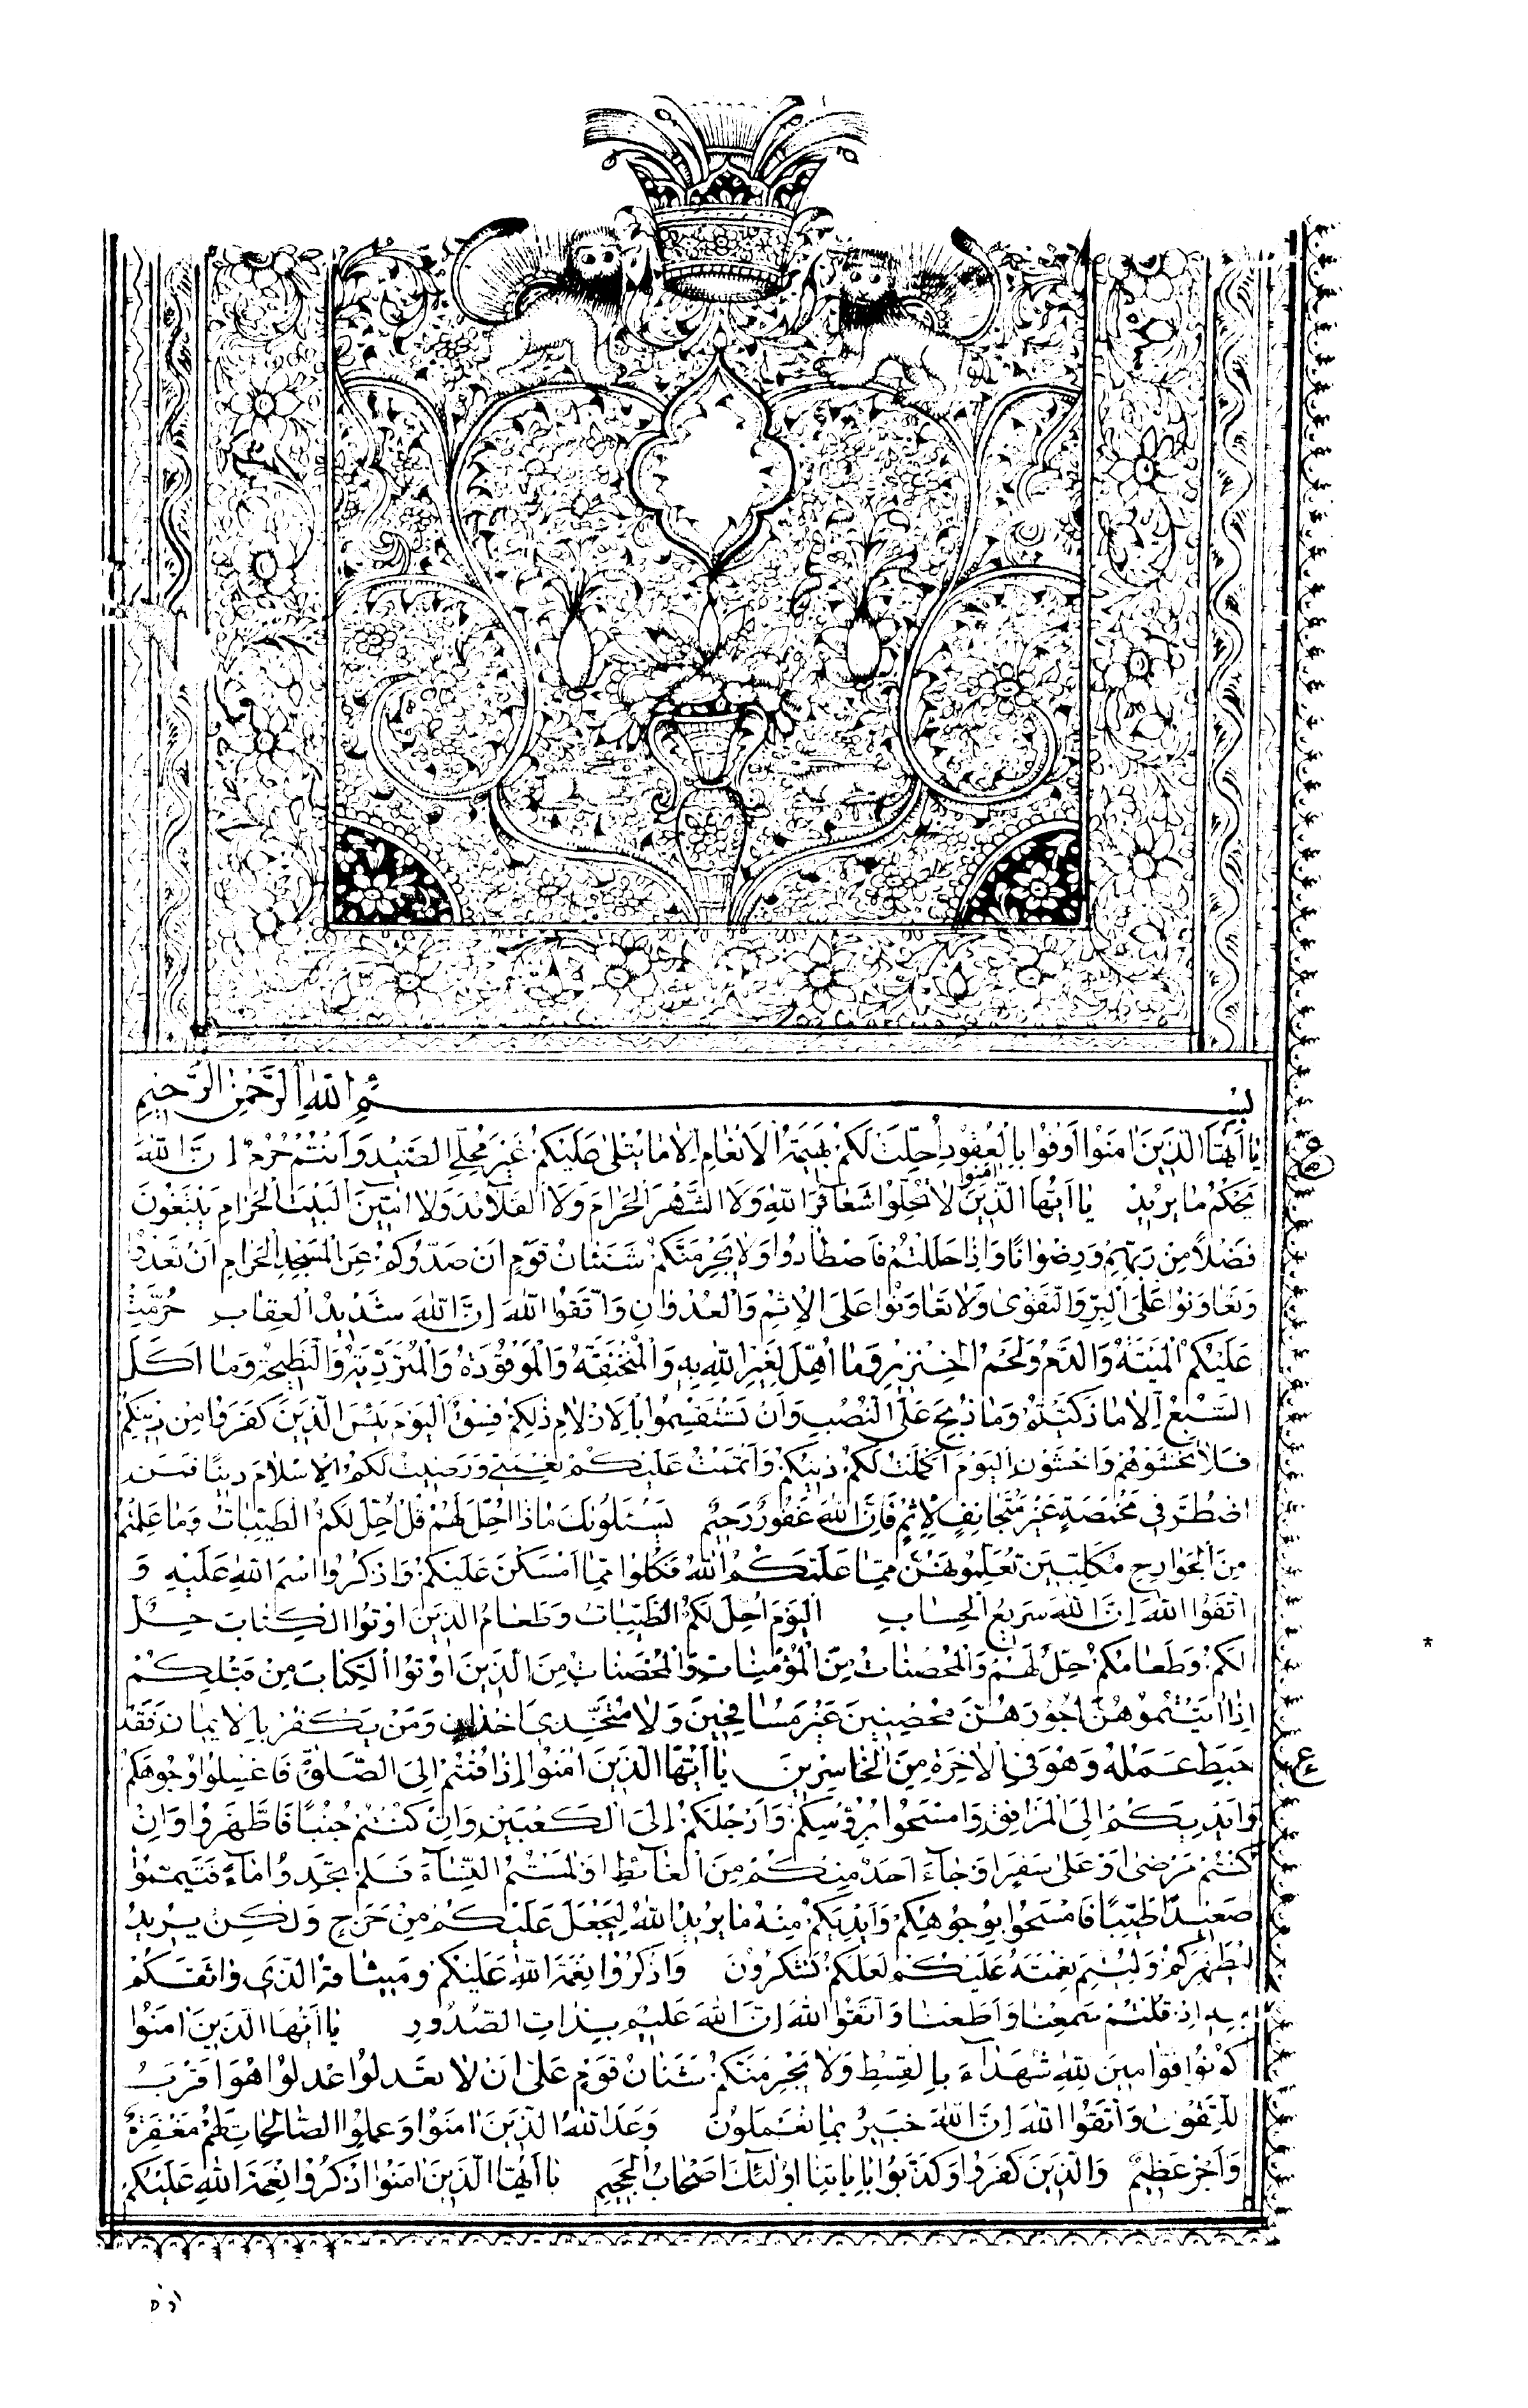 بِسْمِ اللّٰهِ الرَّحْمٰنِ الرَّحِيمِ
يَا أَيُّهَا الَّذِينَ اٰمَنُوا أَوْفُوا بِالْعُقُودِ أُحِلَّتْ لَكُمْ بَهِيمَةُ الْأَنْعَامِ إِلَّا مَا يُتْلٰى عَلَيْكُمْ غَيْرَ مُحِلِّي الصَّيْدِ وَأَنْتُمْ حُرُمٌ إِنَّ اللّٰهَ
يَحْكُمُ مَا يُرِيدُ يَا أَيُّهَا الَّذِينَ اٰمَنُوا لَا تُحِلُّوا شَعَائِرَ اللّٰهِ وَلَا الشَّهْرَ الْحَرَامَ وَلَا الْقَلَائِدَ وَلَا اٰمِّينَ الْبَيْتَ الْحَرَامَ يَبْتَغُونَ
فَضْلًا مِنْ رَبِّهِمْ وَرِضْوَانًا وَإِذَا حَلَلْتُمْ فَاصْطَادُوا وَلَا يَجْرِمَنَّكُمْ شَنَئَانُ قَوْمٍ أَنْ صَدُّوكُمْ عَنِ الْمَسْجِدِ الْحَرَامِ أَنْ تَعْتَدُوا
وَتَعَاوَنُوا عَلَى الْبِرِّ وَالتَّقْوٰى وَلَا تَعَاوَنُوا عَلَى الْإِثْمِ وَالْعُدْوَانِ وَاتَّقُوا اللّٰهَ إِنَّ اللّٰهَ شَدِيدُ الْعِقَابِ حُرِّمَتْ
عَلَيْكُمُ الْمَيْتَةُ وَالدَّمُ وَلَحْمُ الْخِنْزِيرِ وَمَا أُهِلَّ لِغَيْرِ اللّٰهِ بِهِ وَالْمُنْخَنِقَةُ وَالْمَوْقُوذَةُ وَالْمُتَرَدِّيَةُ وَالنَّطِيحَةُ وَمَا أَكَلَ
السَّبُعُ إِلَّا مَا ذَكَّيْتُمْ وَمَا ذُبِحَ عَلَى النُّصُبِ وَأَنْ تَسْتَقْسِمُوا بِالْأَزْلَامِ ذٰلِكُمْ فِسْقٌ الْيَوْمَ يَئِسَ الَّذِينَ كَفَرُوا مِنْ دِينِكُمْ
فَلَا تَخْشَوْهُمْ وَاخْشَوْنِ الْيَوْمَ أَكْمَلْتُ لَكُمْ دِينَكُمْ وَأَتْمَمْتُ عَلَيْكُمْ نِعْمَتِي وَرَضِيتُ لَكُمُ الْإِسْلَامَ دِينًا فَمَنِ
اضْطُرَّ فِي مَخْمَصَةٍ غَيْرَ مُتَجَانِفٍ لِإِثْمٍ فَإِنَّ اللّٰهَ غَفُورٌ رَحِيمٌ يَسْئَلُونَكَ مَاذَا أُحِلَّ لَهُمْ قُلْ أُحِلَّ لَكُمُ الطَّيِّبَاتُ وَمَا عَلَّمْتُمْ
مِنَ الْجَوَارِحِ مُكَلِّبِينَ تُعَلِّمُونَهُنَّ مِمَّا عَلَّمَكُمُ اللّٰهُ فَكُلُوا مِمَّا أَمْسَكْنَ عَلَيْكُمْ وَاذْكُرُوا اسْمَ اللّٰهِ عَلَيْهِ وَ
اتَّقُوا اللّٰهَ إِنَّ اللّٰهَ سَرِيعُ الْحِسَابِ الْيَوْمَ أُحِلَّ لَكُمُ الطَّيِّبَاتُ وَطَعَامُ الَّذِينَ أُوتُوا الْكِتَابَ حِلٌّ
لَكُمْ وَطَعَامُكُمْ حِلٌّ لَهُمْ وَالْمُحْصَنَاتُ مِنَ الْمُؤْمِنَاتِ وَالْمُحْصَنَاتُ مِنَ الَّذِينَ أُوتُوا الْكِتَابَ مِنْ قَبْلِكُمْ
إِذَا اٰتَيْتُمُوهُنَّ أُجُورَهُنَّ مُحْصِنِينَ غَيْرَ مُسَافِحِينَ وَلَا مُتَّخِذِي أَخْدَانٍ وَمَنْ يَكْفُرْ بِالْإِيمَانِ فَقَدْ
حَبِطَ عَمَلُهُ وَهُوَ فِي الْاٰخِرَةِ مِنَ الْخَاسِرِينَ يَا أَيُّهَا الَّذِينَ اٰمَنُوا إِذَا قُمْتُمْ إِلَى الصَّلٰوةِ فَاغْسِلُوا وُجُوهَكُمْ
وَأَيْدِيَكُمْ إِلَى الْمَرَافِقِ وَامْسَحُوا بِرُؤُسِكُمْ وَأَرْجُلَكُمْ إِلَى الْكَعْبَيْنِ وَإِنْ كُنْتُمْ جُنُبًا فَاطَّهَّرُوا وَإِنْ
كُنْتُمْ مَرْضٰى أَوْ عَلٰى سَفَرٍ أَوْ جَاءَ أَحَدٌ مِنْكُمْ مِنَ الْغَائِطِ أَوْ لٰمَسْتُمُ النِّسَاءَ فَلَمْ تَجِدُوا مَاءً فَتَيَمَّمُوا
صَعِيدًا طَيِّبًا فَامْسَحُوا بِوُجُوهِكُمْ وَأَيْدِيكُمْ مِنْهُ مَا يُرِيدُ اللّٰهُ لِيَجْعَلَ عَلَيْكُمْ مِنْ حَرَجٍ وَلٰكِنْ يُرِيدُ
لِيُطَهِّرَكُمْ وَلِيُتِمَّ نِعْمَتَهُ عَلَيْكُمْ لَعَلَّكُمْ تَشْكُرُونَ وَاذْكُرُوا نِعْمَةَ اللّٰهِ عَلَيْكُمْ وَمِيثَاقَهُ الَّذِي وَاثَقَكُمْ
بِهِ إِذْ قُلْتُمْ سَمِعْنَا وَأَطَعْنَا وَاتَّقُوا اللّٰهَ إِنَّ اللّٰهَ عَلِيمٌ بِذَاتِ الصُّدُورِ يَا أَيُّهَا الَّذِينَ اٰمَنُوا
كُونُوا قَوَّامِينَ لِلّٰهِ شُهَدَاءَ بِالْقِسْطِ وَلَا يَجْرِمَنَّكُمْ شَنَئَانُ قَوْمٍ عَلٰى أَنْ لَا تَعْدِلُوا اعْدِلُوا هُوَ أَقْرَبُ
لِلتَّقْوٰى وَاتَّقُوا اللّٰهَ إِنَّ اللّٰهَ خَبِيرٌ بِمَا تَعْمَلُونَ وَعَدَ اللّٰهُ الَّذِينَ اٰمَنُوا وَعَمِلُوا الصَّالِحَاتِ لَهُمْ مَغْفِرَةٌ
وَأَجْرٌ عَظِيمٌ وَالَّذِينَ كَفَرُوا وَكَذَّبُوا بِاٰيَاتِنَا أُولٰئِكَ أَصْحَابُ الْجَحِيمِ يَا أَيُّهَا الَّذِينَ اٰمَنُوا اذْكُرُوا نِعْمَةَ اللّٰهِ عَلَيْكُمْ